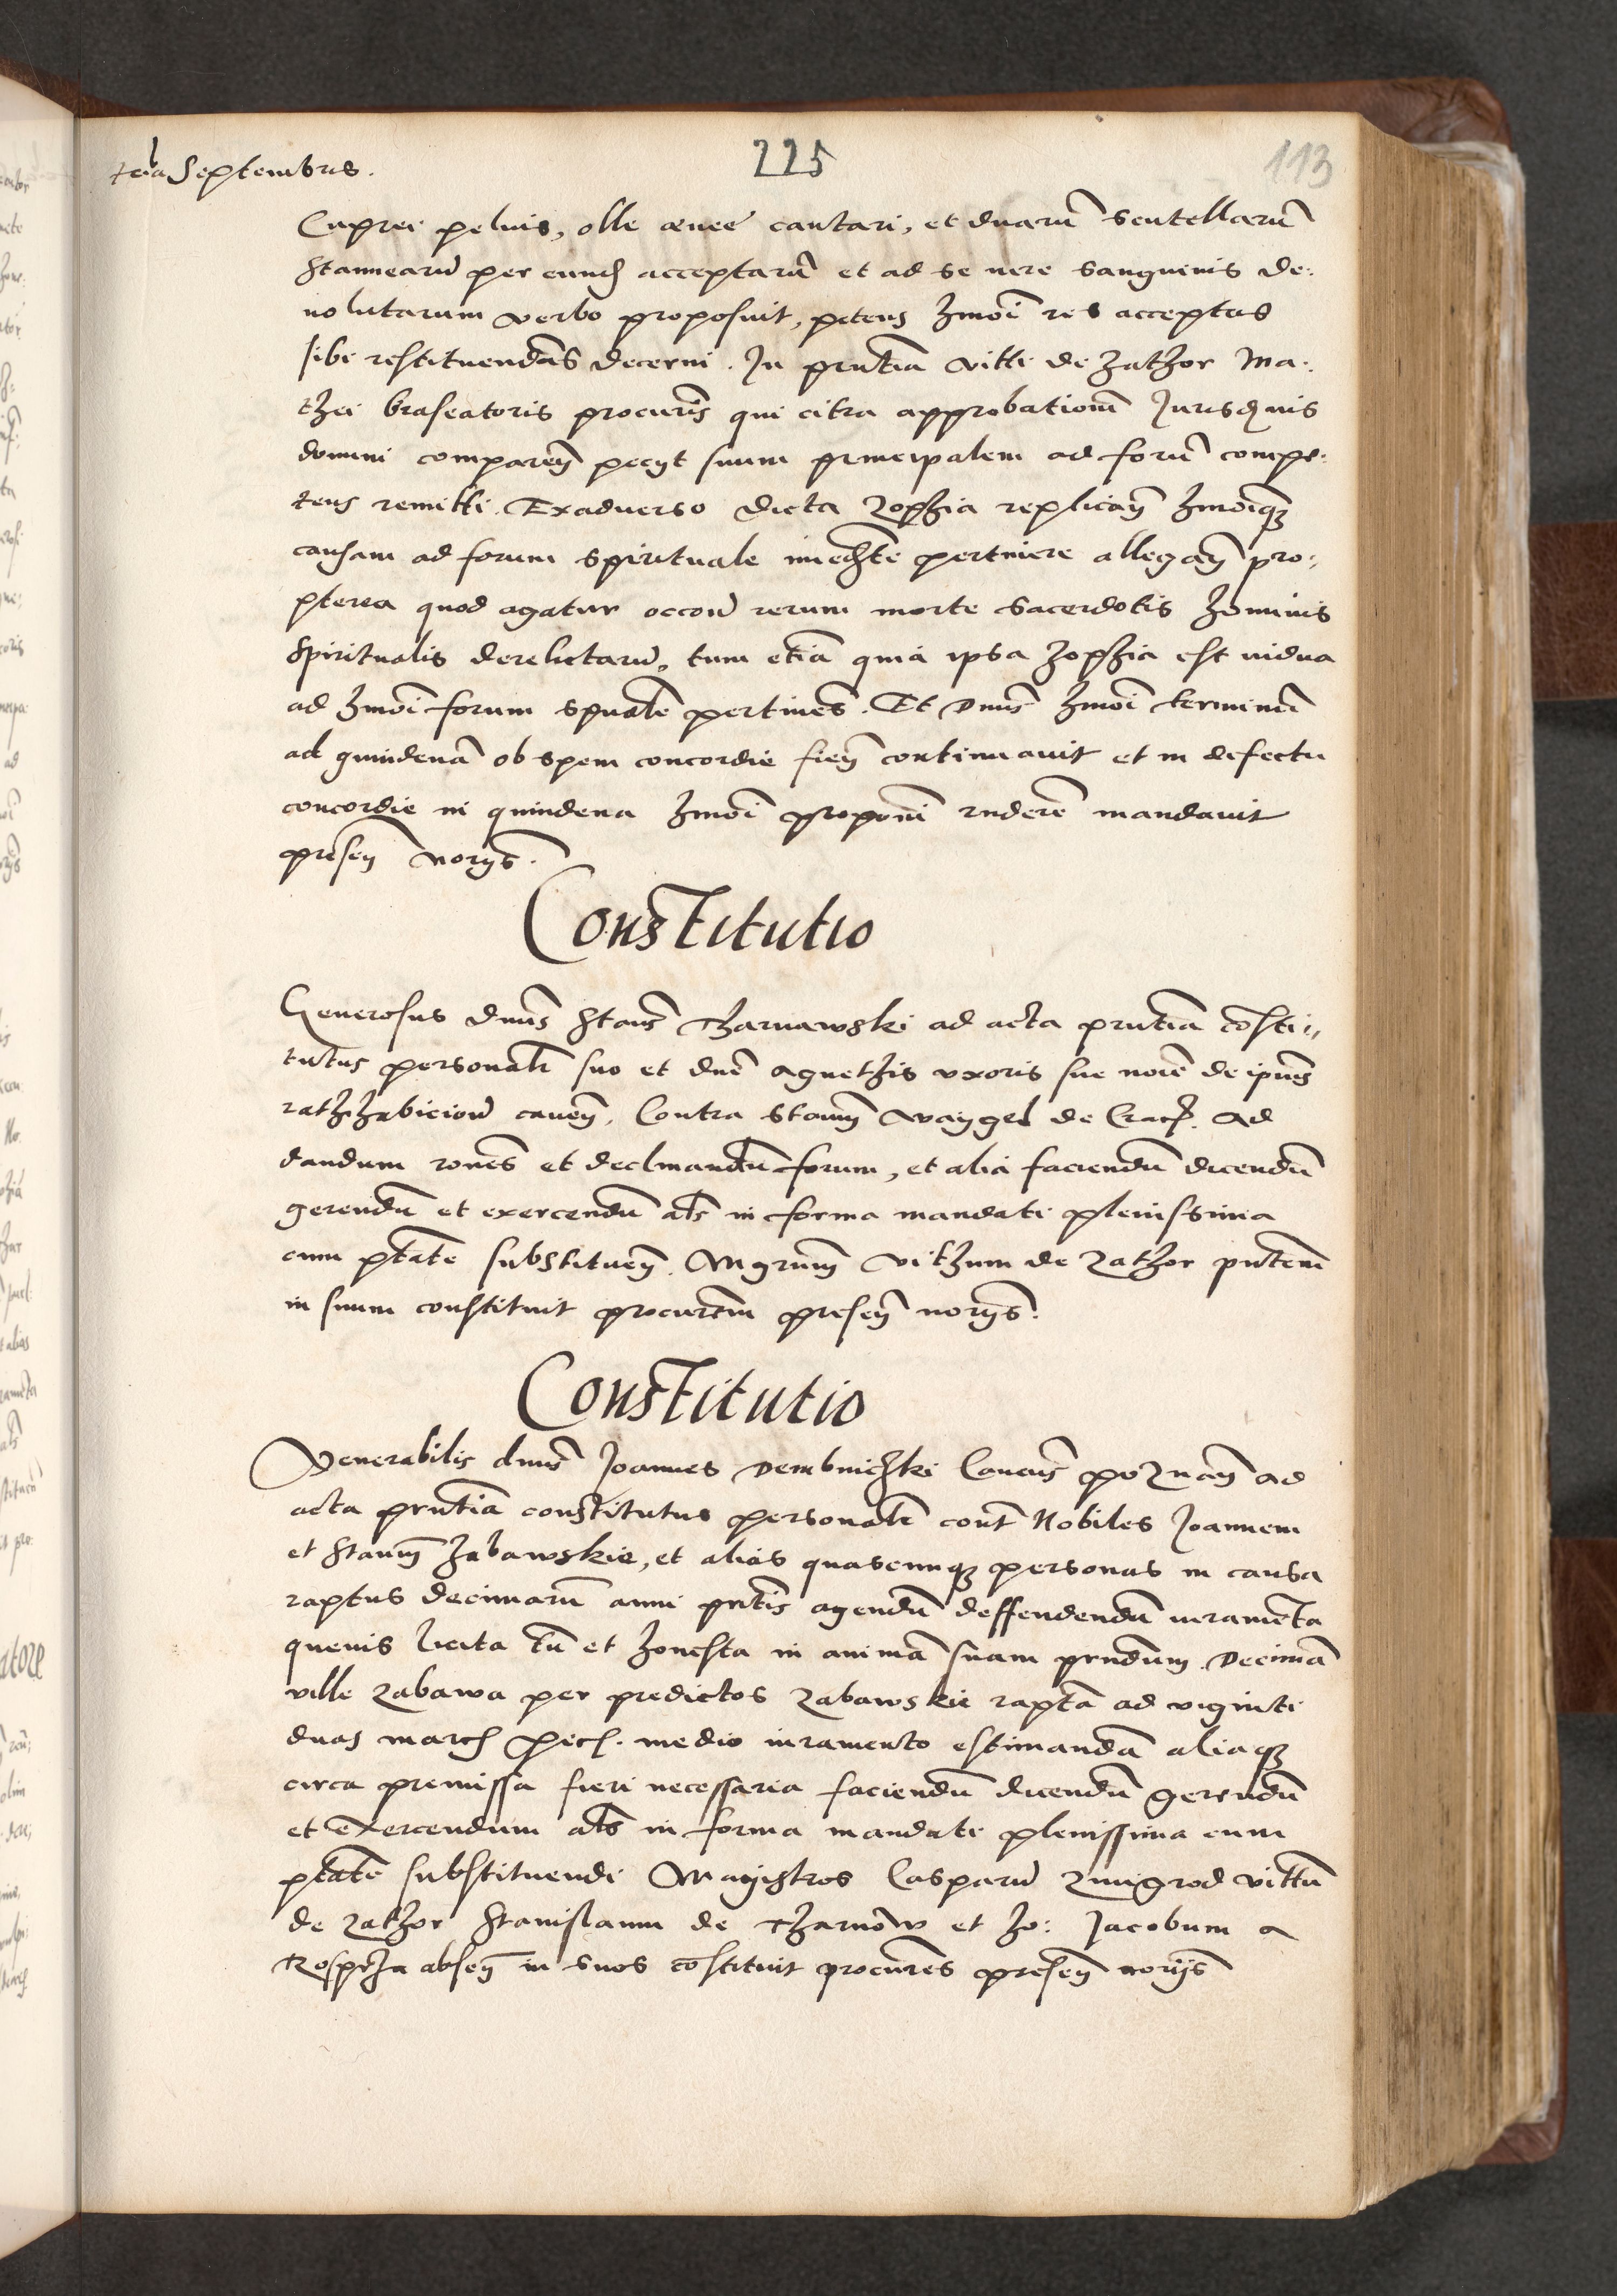 Septembris.
225
113
Cuprei peluis, olle aenee cantari, et duarũ scutellarũ
stannearũ per eund acceptarũ et ad se iure sanguinis de:
uolutarum verbo proposuit, petens hmõi res acceptas
sibi restituendas decerni. In pñtia vitti de Zathor Ma:
thei braseatoris procuris qui citra approbationẽ Jurisdnis
domini compareñ pecyt suum principalem ad forũ compe:
tens remitti. Exaduerso dicta Zophia replicañ hmõiqʒ
causam ad forum spirituale pertinere allegañ pro:
pterea quod agatur occoñ rerum morte sacerdotis hominis
spiritualis derelictarũ, tum etiã quia ipsa Zophia est uidua
ad hmõi forum spuale pertinens. Et Dnus hmõi terminũ
ad quindenã ob spem concordie fieñ continuauit et in defectu
concordie in quindena hmõi proponi rndere mandauit
preseñ noryis.
Constitutio
Generosus dnus Stanis Tharnawski ad acta pñtia cõsti„
tutus personalr suo et dnẽ agnethis vxoris sue noĩe de ipius
rathihabicioñ caueñ, Contra Stanum de Crac. ad
dandum rones et declinandũ forum, et alia faciendũ dicendũ
gerendũ et exercendũ als in forma mandati plenissima
cum ptate substitueñ. Mgrum vithum de Zathor pñtem
in suum constituit procurem preseñ noryis.
Constitutio
Venerabilis dnus Joannes Dembnichki Canous poznañ ad
acta pñtia constitutus personalr cont Nobiles Joannem
et Stanum Zabawskie, et alias quascumqʒ personas in causa
raptus decimarũ anni pñtis agendũ deffendendũ iuramẽta
queuis licita tñ et honesta in animã suam prndum. Decimã
ville Zabawa per predictos Zabawskie raptã ad viginti
duas march pec. medio iuramento estimandã aliaqʒ
circa premissa fieri necessaria faciendũ dicendũ gerendũ
et exercendum als in forma mandati plenissima cum
ptate substituendi Magistros Casparũ Zmigrod vittũ
de Zathor Stanislaum de Tharnow et ho: Jacobum a
abseñ in suos cõstituit procures preseñ noryis